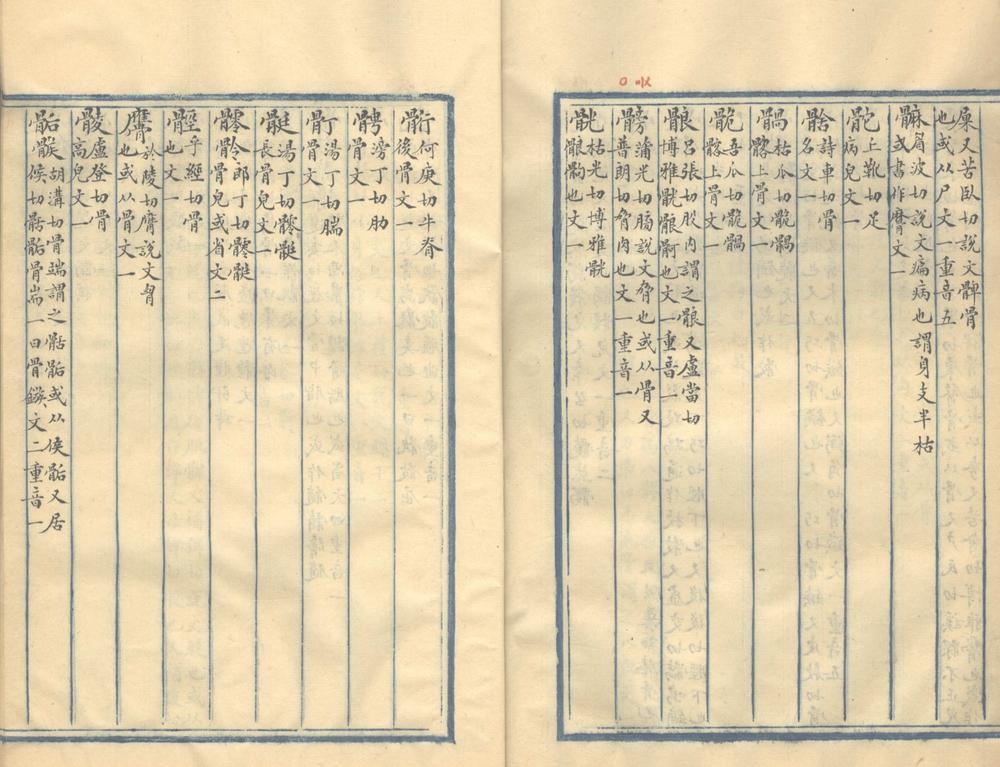 又苦臥切說文髀骨
也或从尸文一重音五
䯢眉波切說文㾺病也謂身支半枯
或書作文一
土靴切足
病皃文一
詩車切骨
名文一
䯞枯瓜切䯞
髂上骨文一
吾瓜切䯞
髂上骨文一
䯖呂張切股肉謂之䯖又盧當切
博雅䯑䯖也文一重音二
髈蒲光切膀說文脅也或从骨又
普朗切脅肉也文一重音一
䯑枯光切博雅䯑
䯖也文一
䯒何庚切牛脊
後骨文一
滂丁切肋
骨文一
湯丁切腨
骨文一
湯丁切
長骨皃文一
郎丁切
骨皃或省文二
乎經切骨
也文一
於陵切膺說文胷
也或从骨文一
盧登切骨
高皃文一
骺胡溝切骨端謂之骺骺或从侯骺又居
候切骺骨耑一曰骨鏃文二重音一